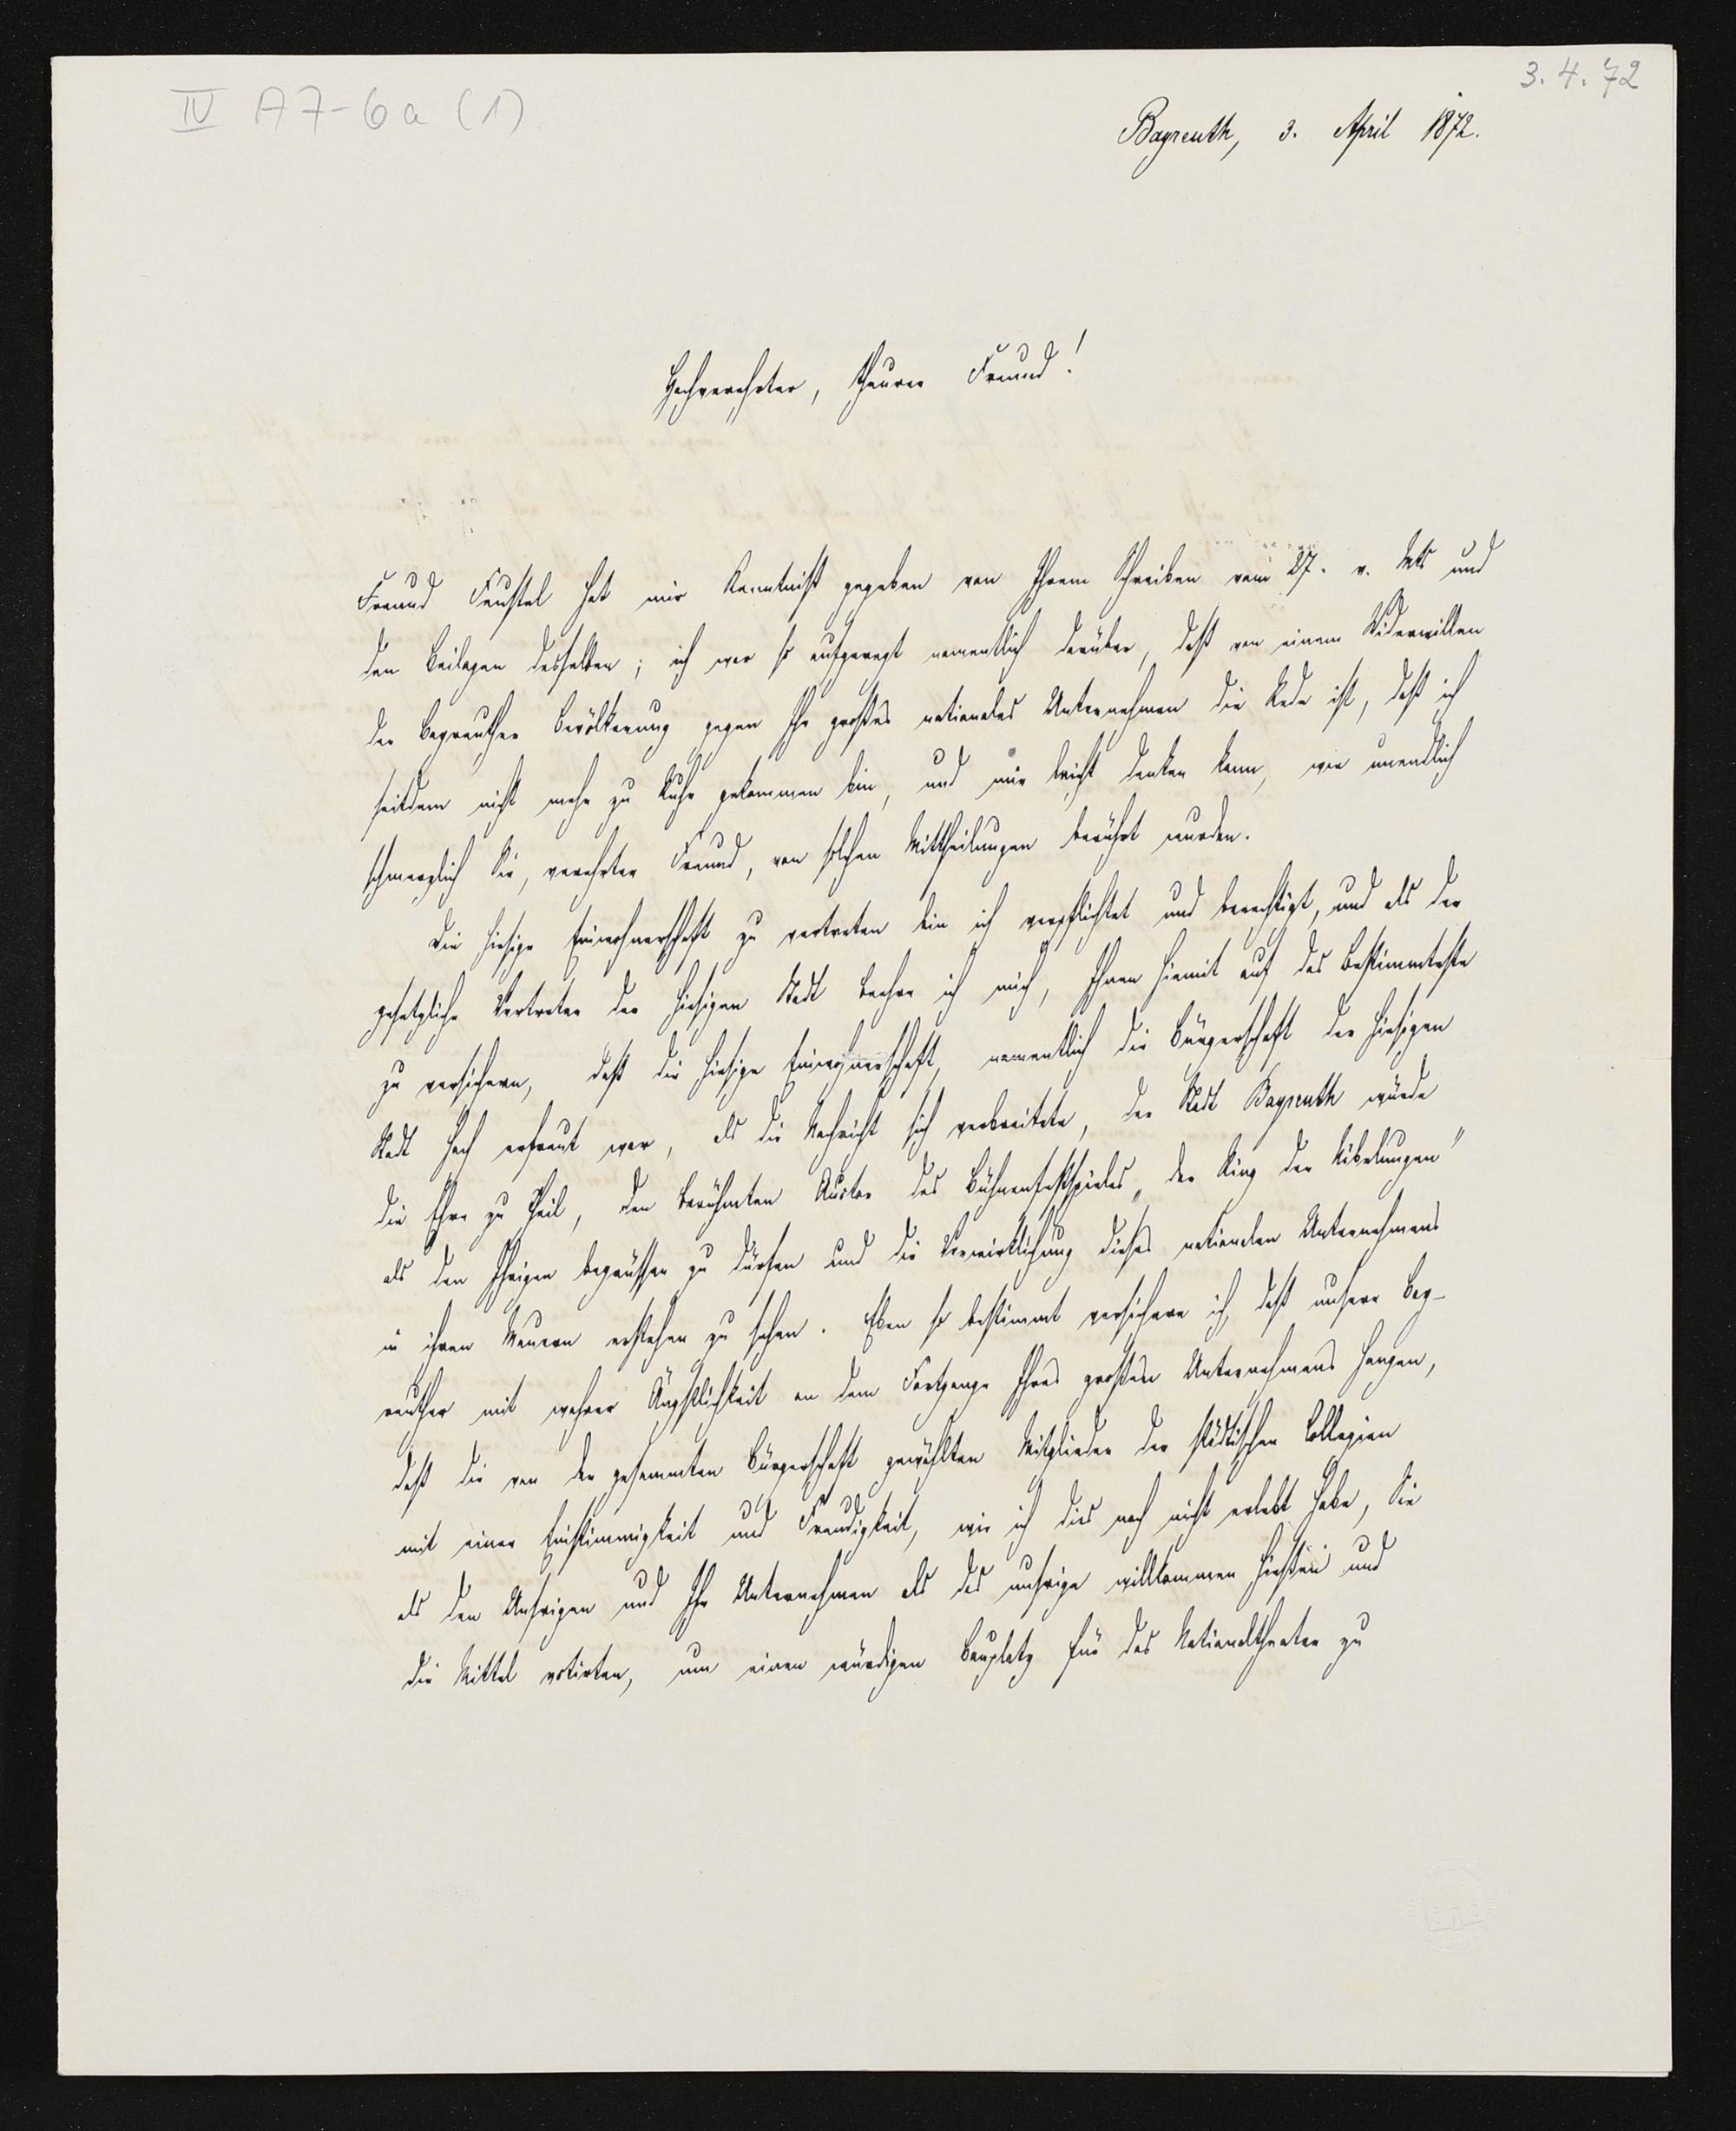 3. 4. 72
IV A7-6a (1)
Bayreuth, 3. April 1872.
Hochverehrter, theurer Freund!
Freund Feustel hat mir Kenntniß gegeben von Ihrem Schreiben vom 27. v. Mts und
den Beilagen desselben; ich war so aufgeregt namentlich darüber, daß von einem Widerwillen
der Bayreuther Bevölkerung gegen Ihr großes nationales Unternehmen die Rede ist, daß ich
seitdem nicht mehr zu Ruhe gekommen bin, und mir leicht denken kann, wie unendlich
schmerzlich Sie, verehrter Freund, von solchen Mittheilungen berührt wurden.
Die hiesige Einwohnerschaft zu vertreten bin ich verpflichtet und berechtigt, und als der
gesetzliche Vertreter der hiesigen Stadt beehre ich mich, Ihnen hiemit auf das Bestimmteste
zu versichern, daß die hiesige Einwohnerschaft, namentlich die Bürgerschaft der hiesigen
Stadt hoch erfreut war, als die Nachricht sich verbreitete, der Stadt Bayreuth würde
die Ehre zu Theil, den berühmten Autor des Bühnenfestspieles „der Ring der Nibelungen"
als den Ihrigen begrüssen zu dürfen und die Verwirklichung dieses nationalen Unternehmens
in ihren Mauern erstehen zu sehen. Eben so bestimmt versichere ich, daß unsere Bay-
reuther mit wahrer Ängstlichkeit an dem Fortgange Ihres großen Unternehmens hangen,
daß die von der gesammten Bürgerschaft gewählten Mitglieder der städtischen Collegien
mit einer Einstimmigkeit und Freudigkeit, wie ich dies noch nicht erlebt habe, Sie
als den Unsrigen und Ihr Unternehmen als das unsrige willkommen hießen und
die Mittel votirten, um einen würdigen Bauplatz für das Nationaltheater zu